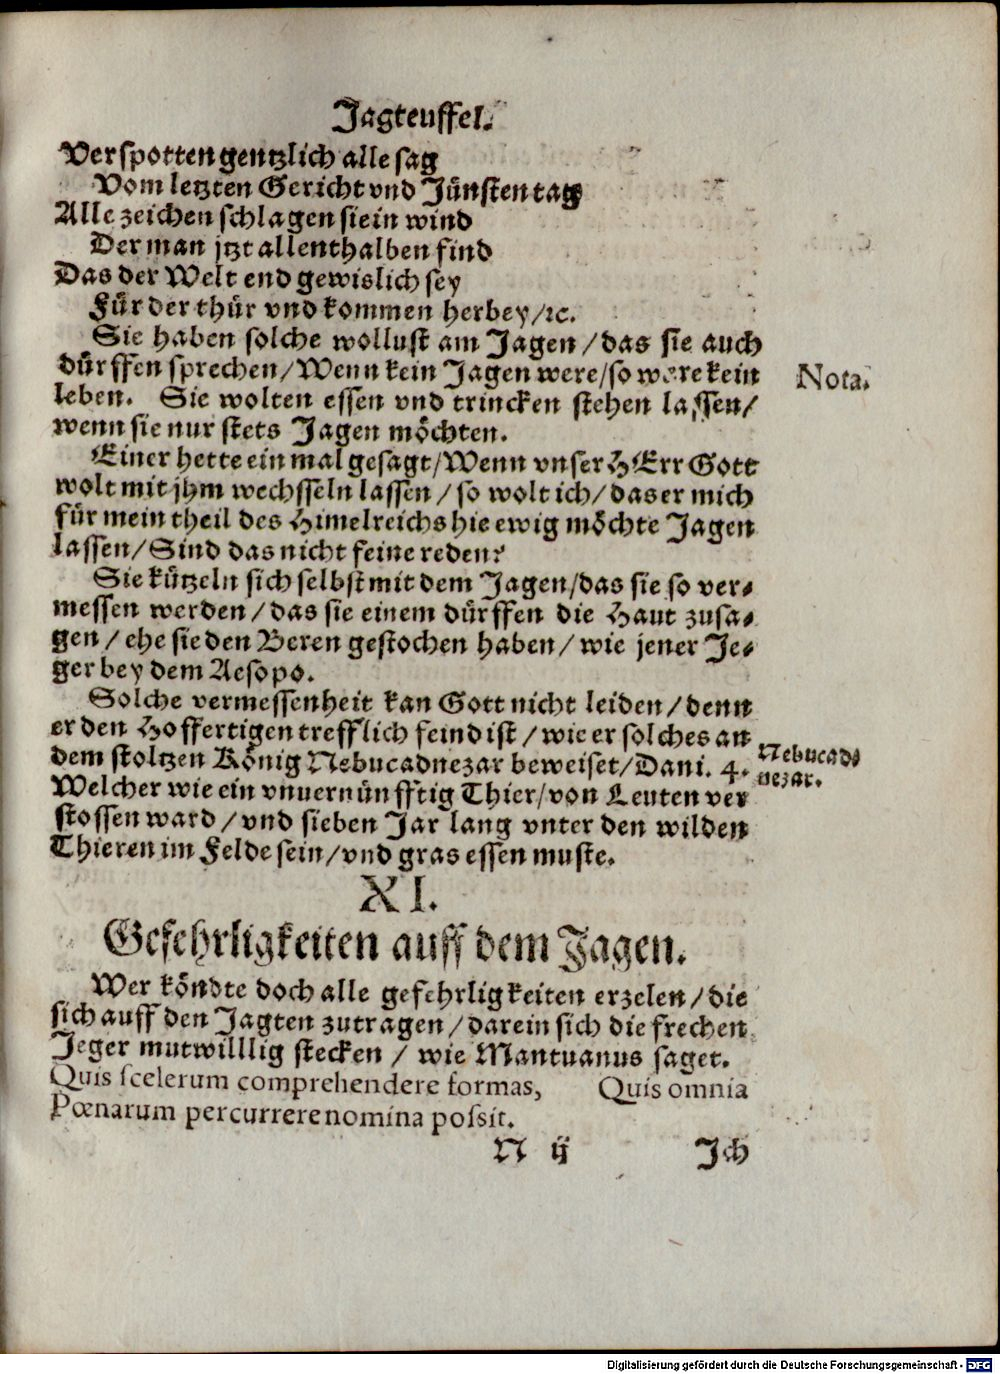 Jagteuffel.
Verspotten gentzlich alle sag
Vom letzten Gericht vnd Jünsten tag
Alle zeichen schlagen sie in wind
Der man jtzt allenthalben find
Das der Welt end gewislich sey
Für der thür vnd kommen herbey/ꝛc.
Sie haben solche wollust am Jagen/das sie auch
dürffen sprechen/Wenn kein Jagen were/so were kein
Nota.
leben. Sie wolten essen vnd trincken stehen lassen/
wenn sie nur stets Jagen möchten.
Einer hette ein mal gesagt/Wenn vnser HErr Gott
wolt mit jhm wechsseln lassen/so wolt ich/das er mich
für mein theil des Himelreichs hie ewig möchte Jagen
lassen/Sind das nicht feine reden?
Sie kützeln sich selbst mit dem Jagen/das sie so ver⸗
messen werden/das sie einem dürffen die Haut zusa⸗
gen/ehe sie den Beren gestochen haben/wie jener Je⸗
ger bey dem Aesopo.
Solche vermessenheit kan Gott nicht leiden/denn
er den Hoffertigen trefflich feind ist/wie er solches an
dem stoltzen König Nebucadnezar beweiset/Dani. 4.
Nebucad⸗
nezar.
Welcher wie ein vnuernünfftig Thier/von Leuten ver
stossen ward/vnd sieben Jar lang vnter den wilden
Thieren im Felde sein/vnd gras essen muste.
XI.
Gefehrligkeiten auff dem Jagen.
Wer köndte doch alle gefehrligkeiten erzelen/die
sich auff den Jagten zutragen/darein sich die frechen
Jeger mutwilllig stecken/wie Mantuanus saget.
Quis scelerum comprehendere formas, Quis omnia
Pœnarum percurrere nomina possit.
N ij Ich
Digitalisierung gefördert durch die Deutsche Forschungsgemeinschaft - DFG